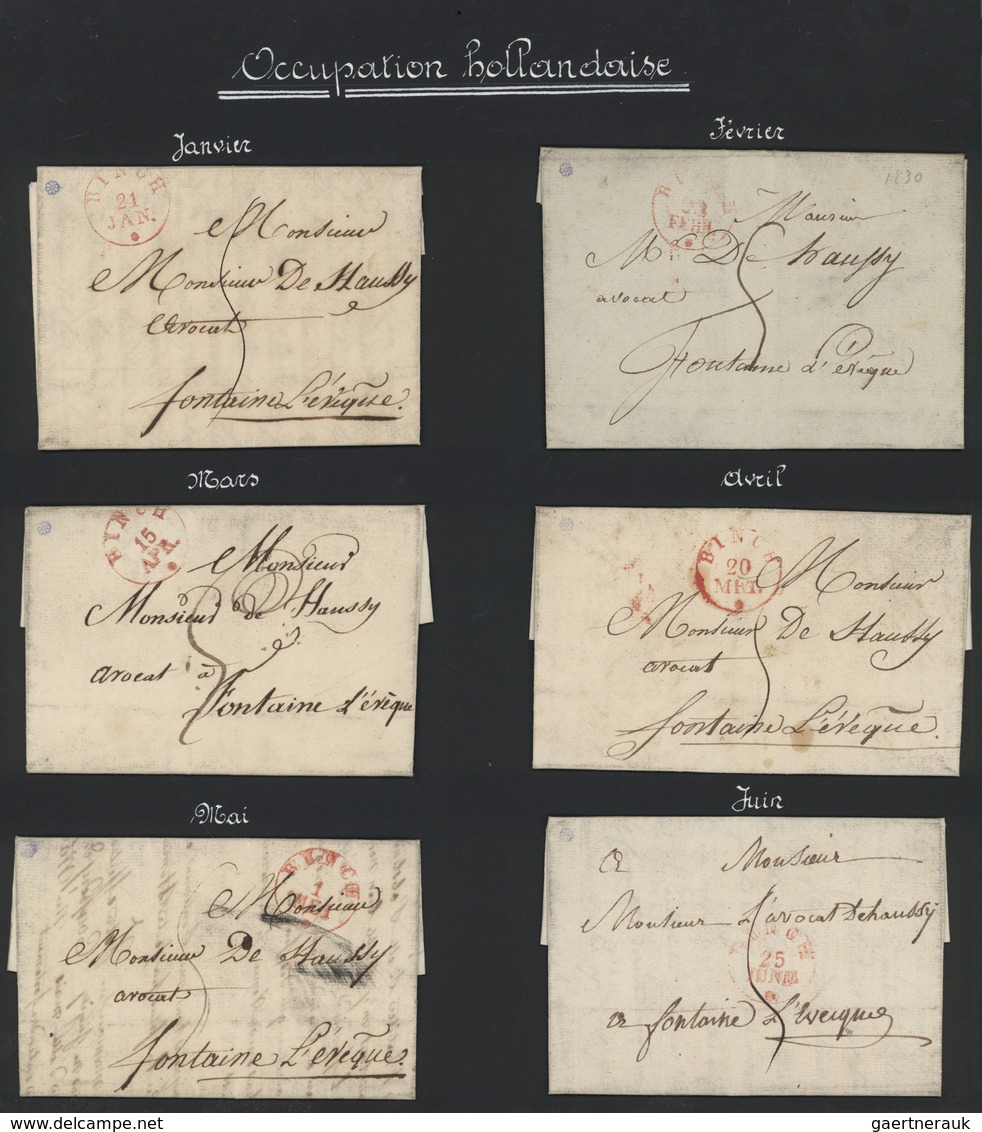 Occupation hollandaise
Janvier
BINCH
21
JAN.
Monsieur
Monsieur De Haussy
avocat
fontaine L'évêque.
Février
1830
FEBR
Monsieur
Mr De haussy
avocat
Fontaine d'évêque
Mars
BINCH
15
APR.
Monsieur
Monsieur de Haussy
avocat à
Fontaine L'évêque
Avril
BINCH
20
MRT.
Monsieur
Monsieur De Haussy
avocat
fontaine L'évêque.
Mai
BINCH
1
MEI
Monsieur
Monsieur De Haussy
avocat
fontaine L'évêque.
Juin
a Monsieur
Monsieur L'avocat Dehaussy
BINCH
25
JUNIJ
a fontaine L'Eveque
gaertnerauk